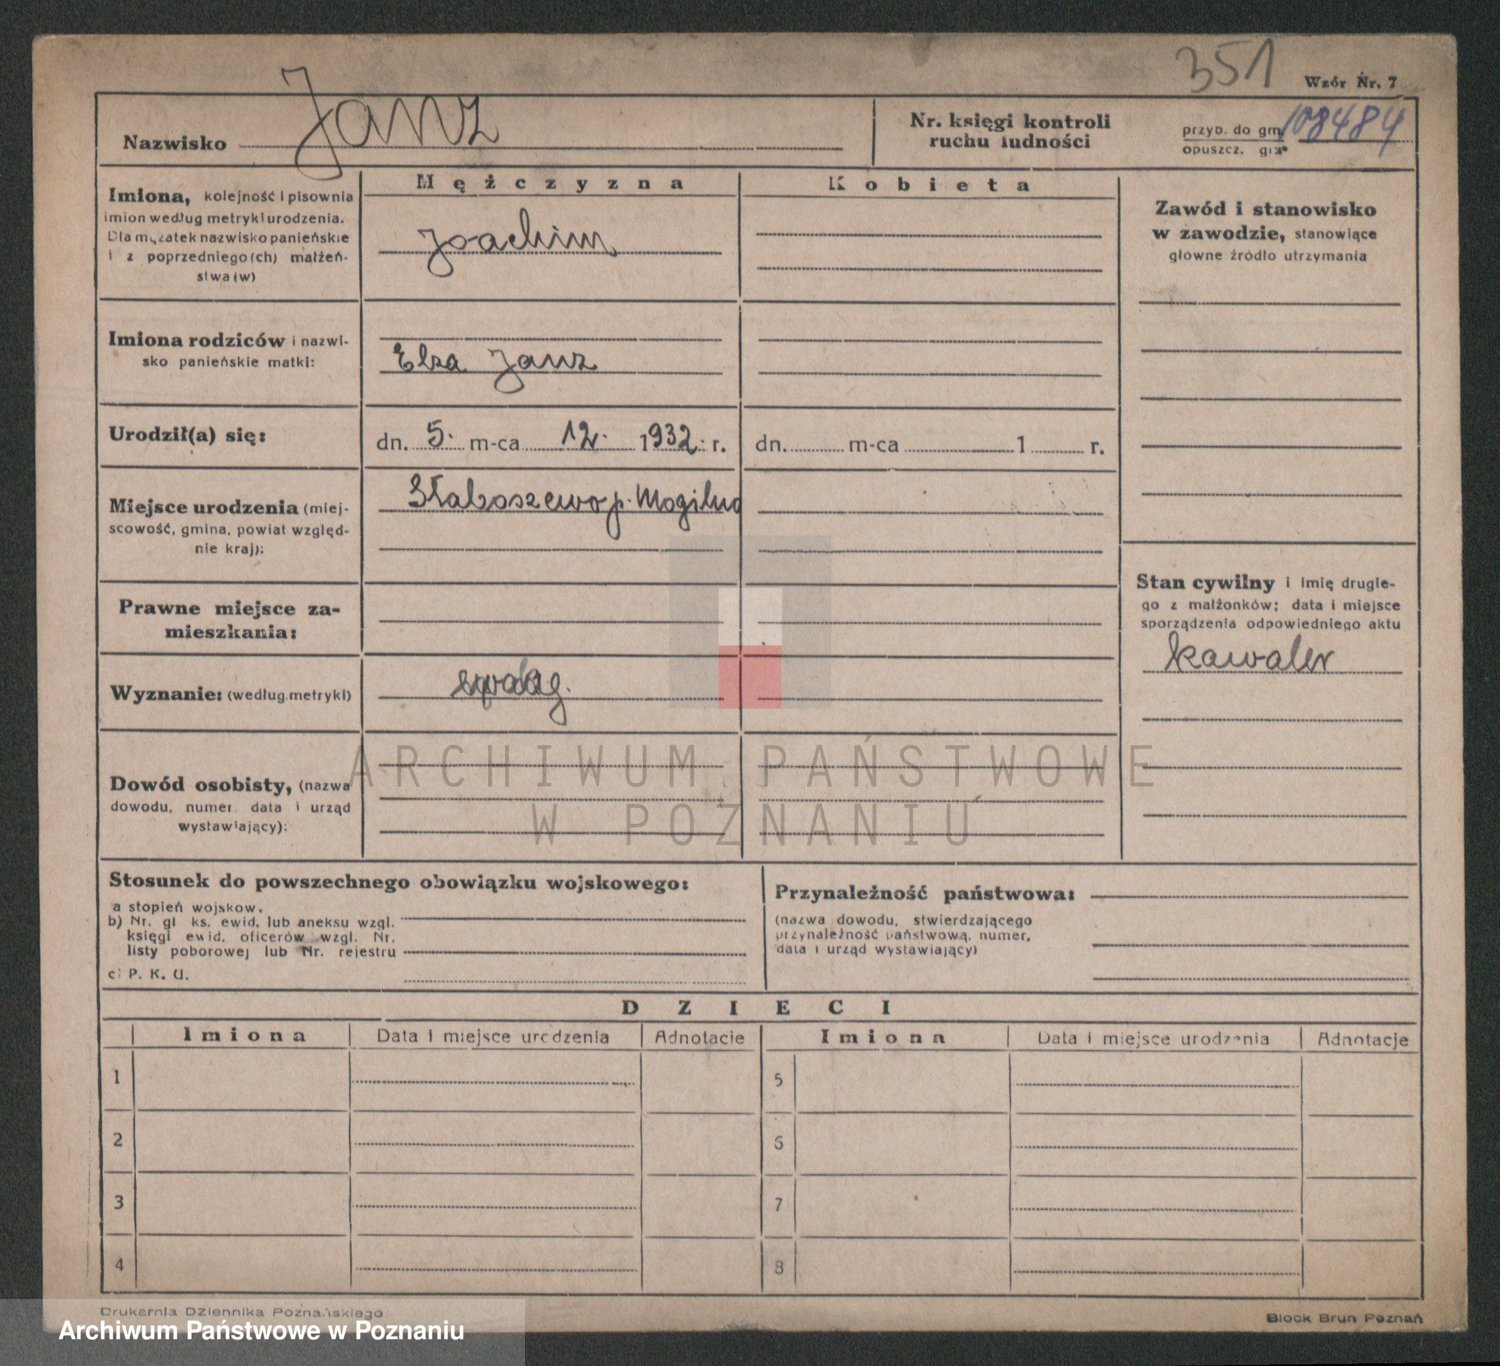 351
Wzór Nr. 7
Nazwisko Janz
Nr. księgi kontroli
ruchu ludności
przyb. do gm. 108484
opuszcz. gm.
Mężczyzna
Kobieta
Imiona, kolejność i pisownia
imion według metryki urodzenia.
Dla mężatek nazwisko panieńskie
i z poprzedniego(ch) małżeń-
stwa(w)
Joachim
Zawód i stanowisko
w zawodzie, stanowiące
główne źródło utrzymania
Imiona rodziców i nazwi-
sko panieńskie matki:
Elza Janz
Urodził(a) się:
dn. 5. m-ca 12. 1932. r.
dn. m-ca 1 r.
Miejsce urodzenia (miej-
scowość, gmina, powiat względ-
nie kraj):
Słaboszewo p. Mogilno
Stan cywilny i imię drugie-
go z małżonków; data i miejsce
sporządzenia odpowiedniego aktu
kawaler
Prawne miejsce za-
mieszkania:
Wyznanie: (według metryki)
Dowód osobisty, (nazwa
dowodu, numer, data i urząd
wystawiający):
ARCHIWUM PAŃSTWOWE
W POZNANIU
Stosunek do powszechnego obowiązku wojskowego:
a stopień wojskow.
b) Nr. gł ks. ewid. lub aneksu wzgl.
księgi ewid. oficerów wzgl. Nr.
listy poborowej lub Nr. rejestru
c) P. K. U.
Przynależność państwowa:
(nazwa dowodu, stwierdzającego
przynależność państwową, numer,
data i urząd wystawiający)
DZIECI
Imiona Data i miejsce urodzenia Adnotacje Imiona Data i miejsce urodzenia Adnotacje
1 5
2 6
3 7
4 8
Drukarnia Dziennika Poznańskiego
Block Brun Poznań
Archiwum Państwowe w Poznaniu